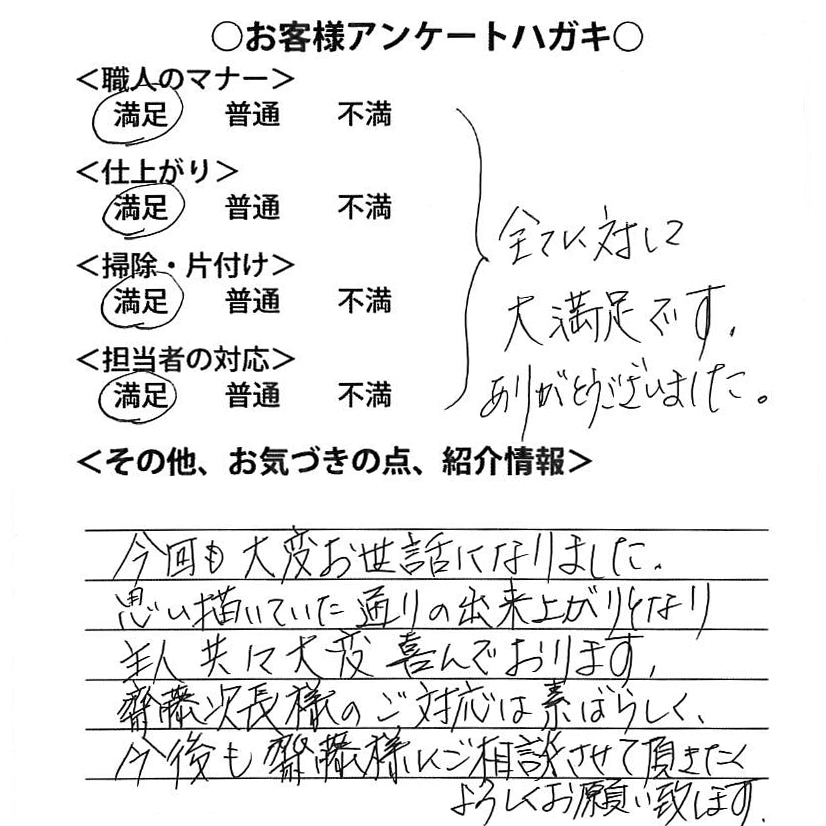 ○お客様アンケートハガキ○
＜職人のマナー＞
満足 普通 不満
＜仕上がり＞
満足 普通 不満
＜掃除・片付け＞
満足 普通 不満
＜担当者の対応＞
満足 普通 不満
全てに対して
大満足です。
ありがとうございました。
＜その他、お気づきの点、紹介情報＞
今回も大変お世話になりました。
思い描いていた通りの出来上がりとなり
主人共々大変喜んでおります。
齋藤次長様のご対応は素ばらしく、
今後も齋藤様にご相談させて頂きたく
よろしくお願い致します。